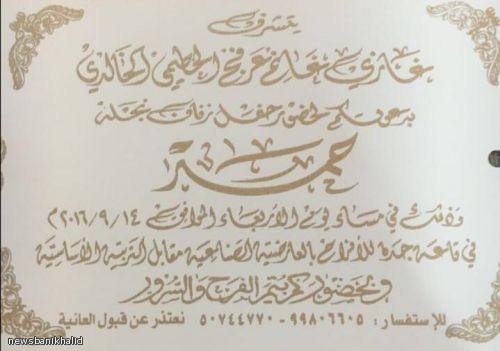 يتشرف
غازي غانم عرفج الحطيمي الخالدي
بدعوتكم لحضور حفل زفاف نجله
حمزة
وذلك في مساء يوم الأربعاء الموافق ٢٠١٦/٩/١٤م
في قاعة حمده للأفراح بالعارضية الصناعية مقابل التربية الأساسية
وبحضوركم يتم الفرح والسرور
للإستفسار: ٩٩٨٠٦٦٠٥ - ٥٠٧٤٤٧٧٠ نعتذر عن قبول العانية
newsbanikhalid